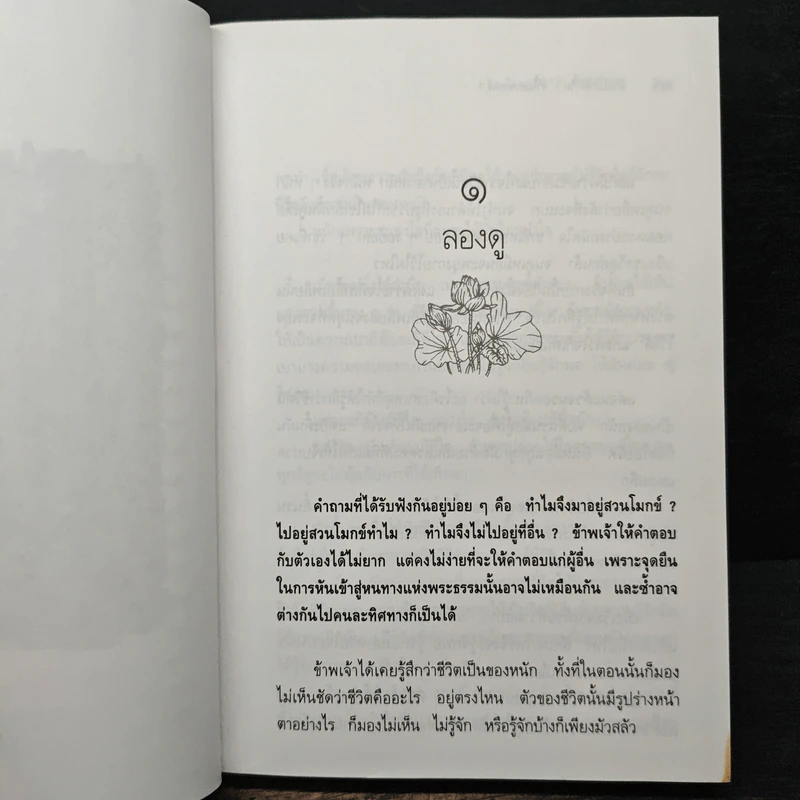 ๑
ลองดู
คำถามที่ได้รับฟังกันอยู่บ่อย ๆ คือ ทำไมจึงมาอยู่สวนโมกข์ ?
ไปอยู่สวนโมกข์ทำไม ? ทำไมจึงไม่ไปอยู่ที่อื่น ? ข้าพเจ้าให้คำตอบ
กับตัวเองได้ไม่ยาก แต่คงไม่ง่ายที่จะให้คำตอบแก่ผู้อื่น เพราะจุดยืน
ในการหันเข้าสู่หนทางแห่งพระธรรมนั้นอาจไม่เหมือนกัน และซ้ำอาจ
ต่างกันไปคนละทิศทางก็เป็นได้
ข้าพเจ้าได้เคยรู้สึกว่าชีวิตเป็นของหนัก ทั้งที่ในตอนนั้นก็มอง
ไม่เห็นชัดว่าชีวิตคืออะไร อยู่ตรงไหน ตัวของชีวิตนั้นมีรูปร่างหน้า
ตาอย่างไร ก็มองไม่เห็น ไม่รู้จัก หรือรู้จักบ้างก็เพียงมัวสลัว